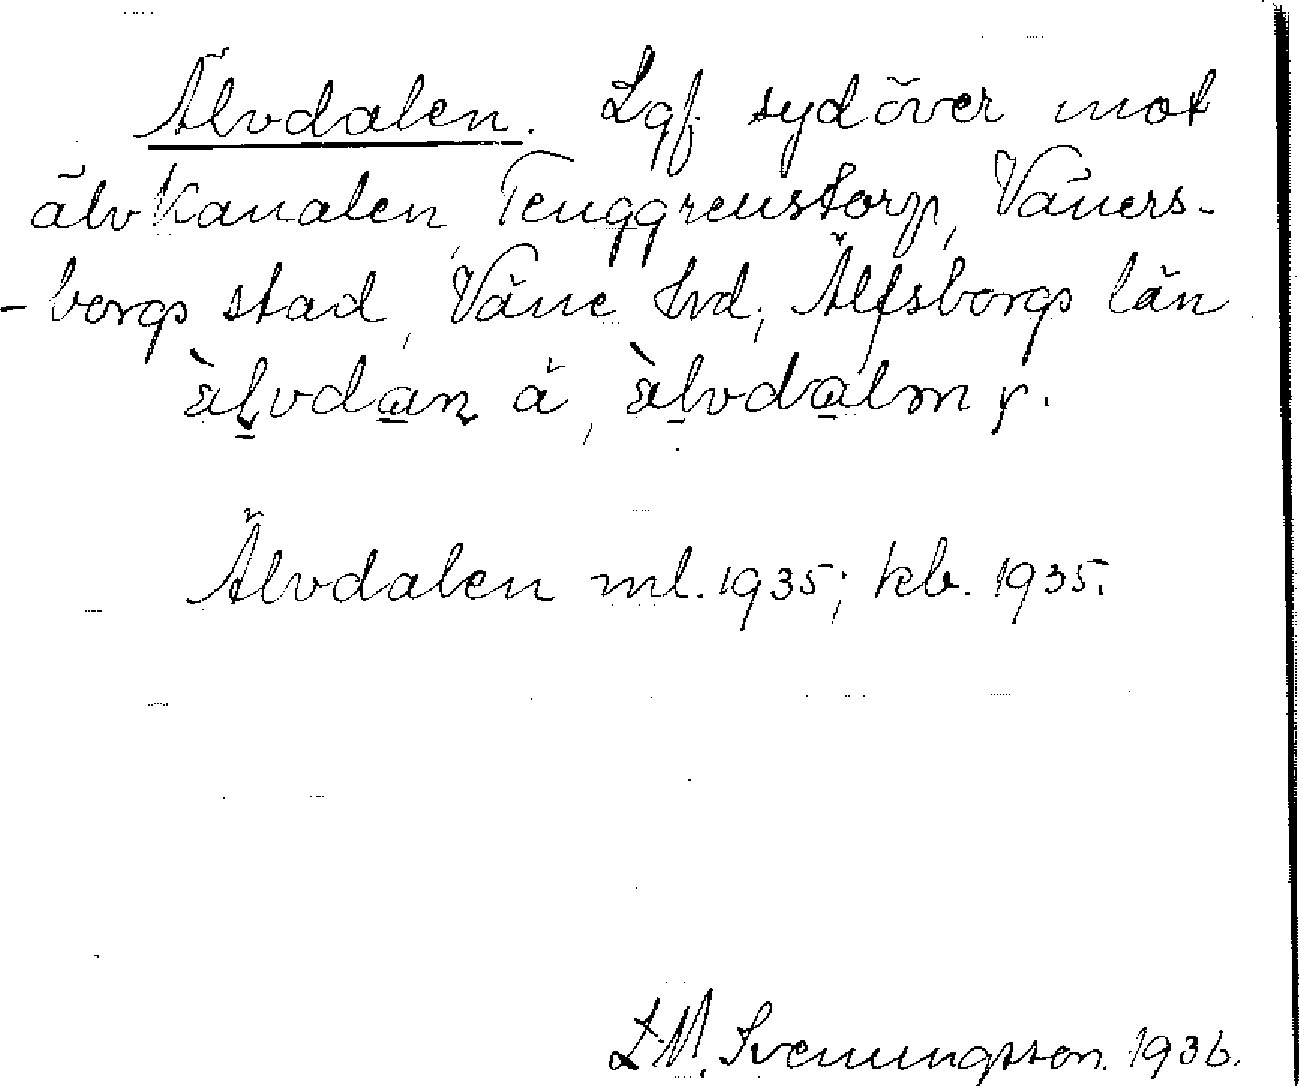 Älvdalen. Lgf. sydöver mot
älvkanalen, Tenggrenstorp, Väners-
-borgs stad, Väne hd, Älfsborgs län
älvdan ä, älvdalm y.
Älvdalen ml. 1935; kb. 1935.
L.M. Svenungsson. 1936.